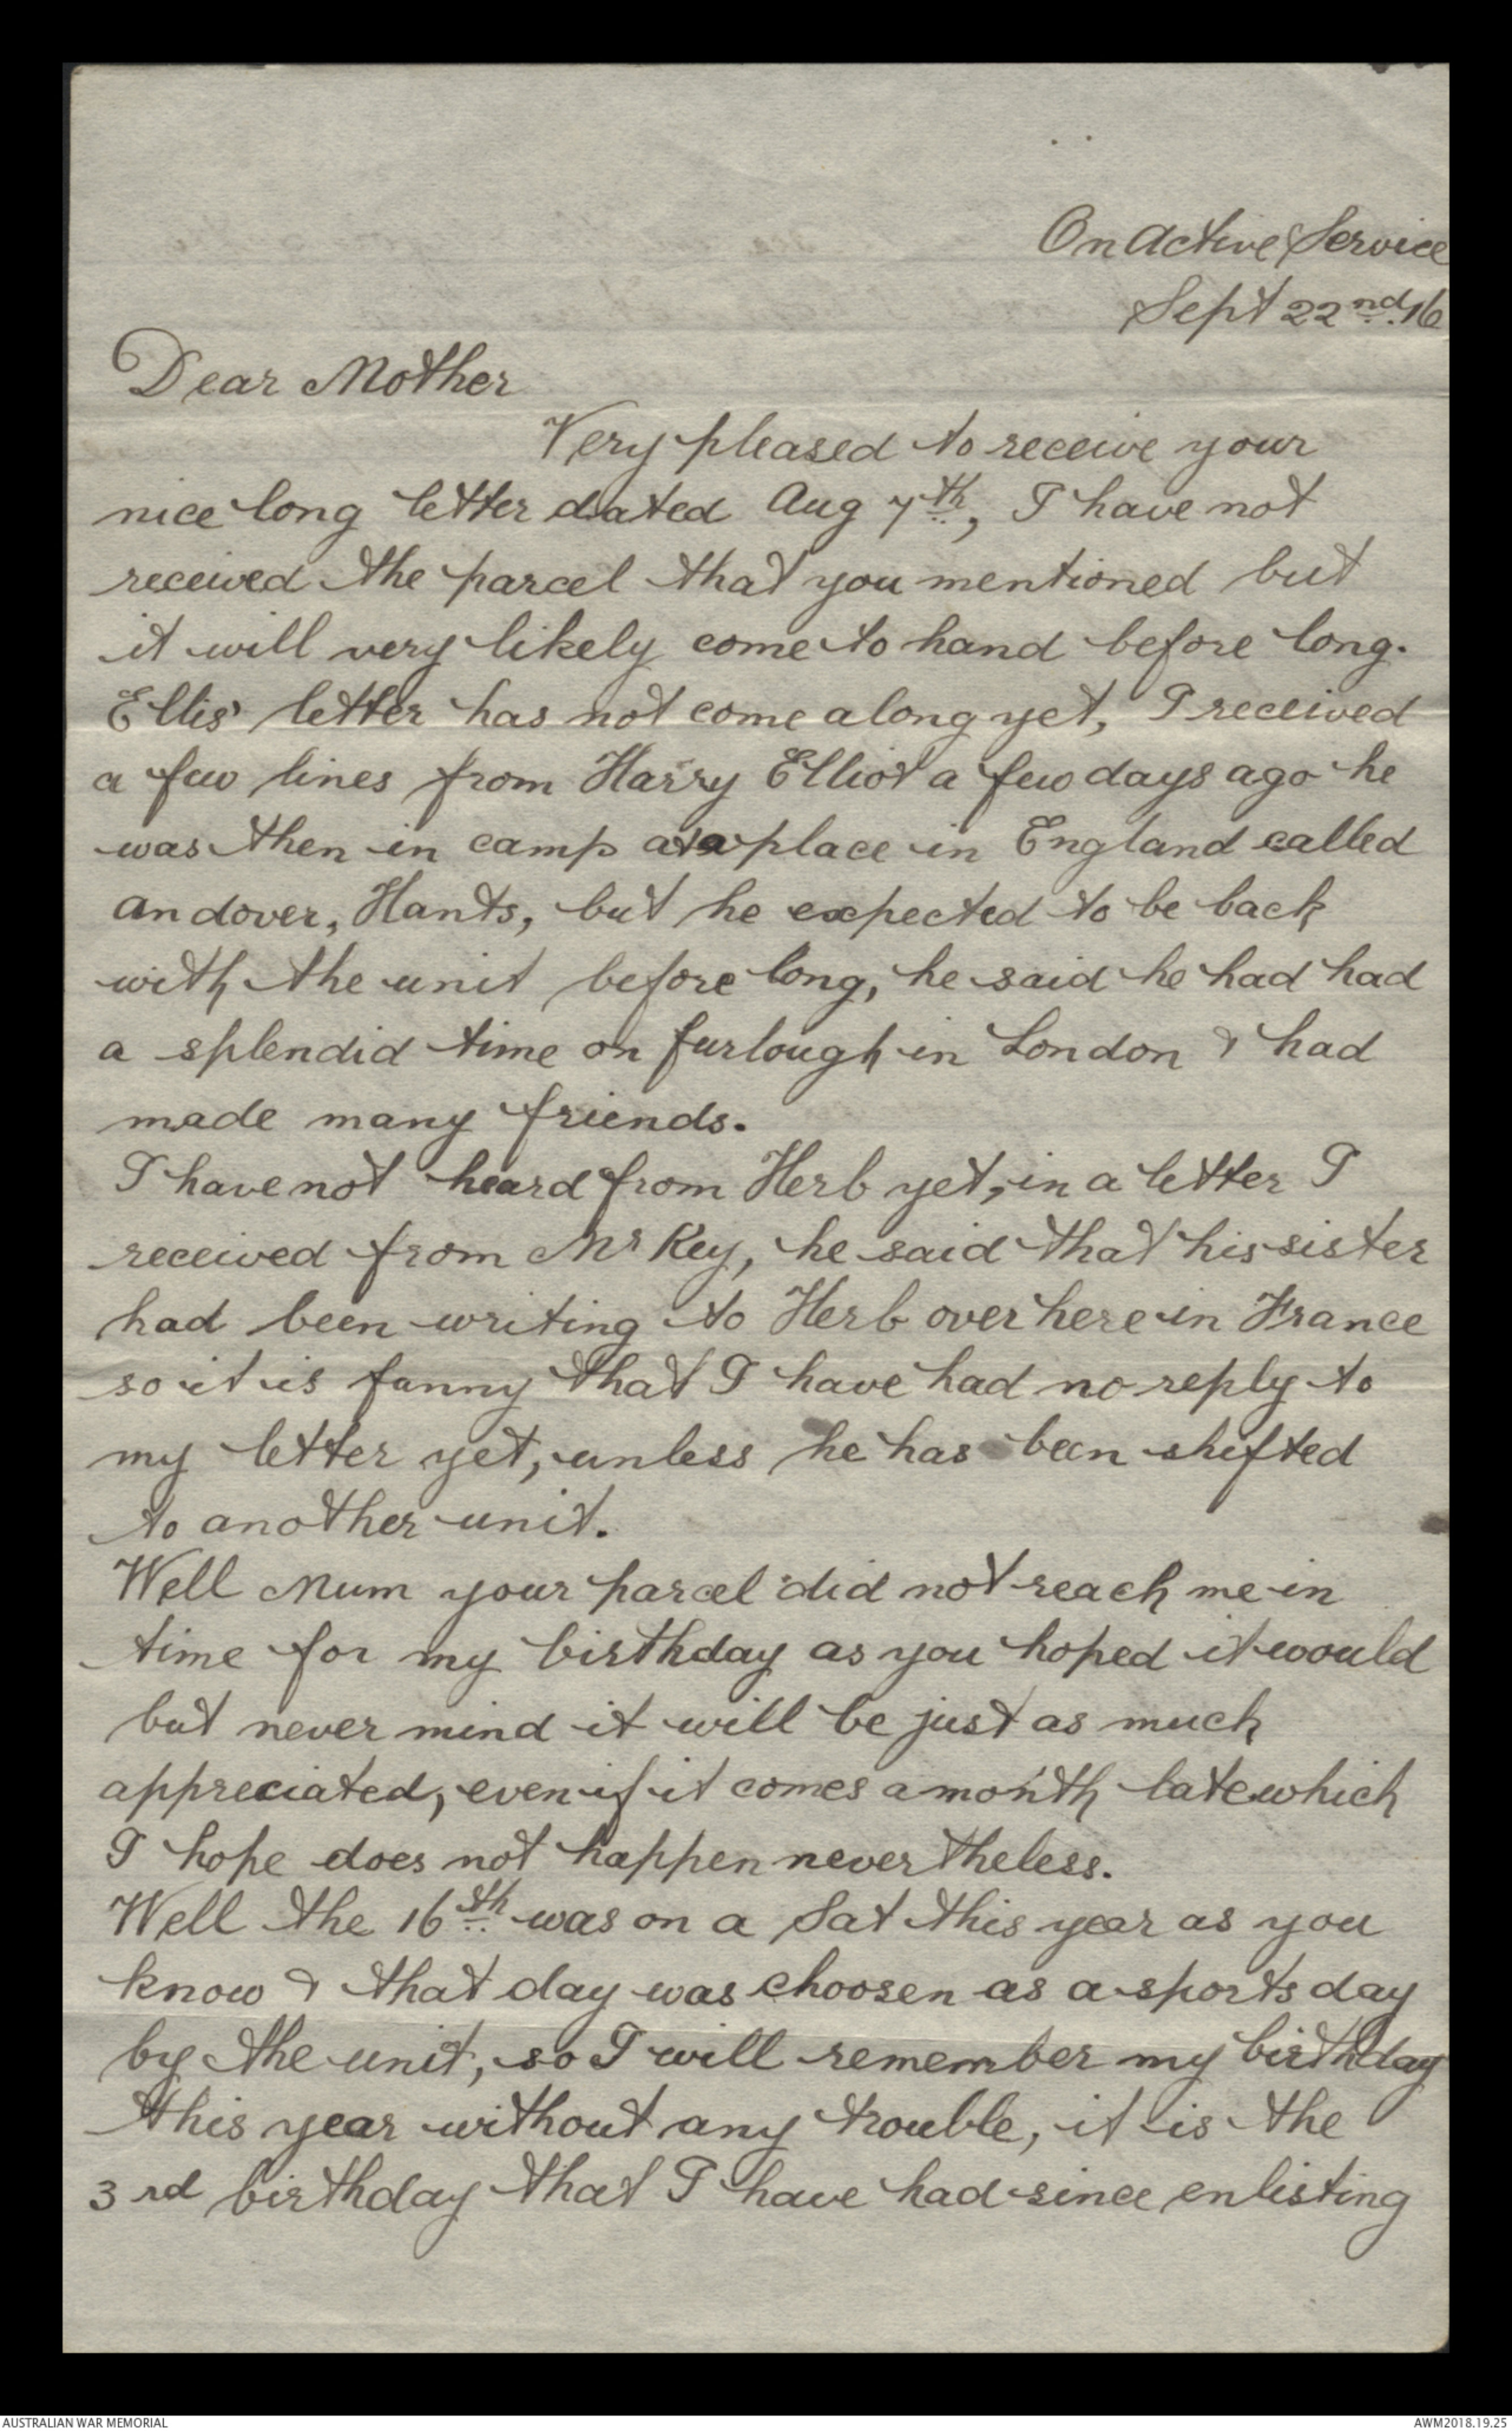 On Active Service
Sept 22nd. 16
Dear Mother
Very pleased to receive your
nice long letter dated Aug 7th, I have not
received the parcel that you mentioned but
it will very likely come to hand before long.
Ellis' letter has not come along yet, I received
a few lines from Harry Elliot a few days ago he
was then in camp at a place in England called
Andover, Hants, but he expected to be back
with the unit before long, he said he had had
a splendid time on furlough in London & had
made many friends.
I have not heard from Herb yet, in a letter I
received from Mr Key, he said that his sister
had been writing to Herb over here in France
so it is funny that I have had no reply to
my letter yet, unless he has been shifted
to another unit.
Well Mum your parcel did not reach me in
time for my birthday as you hoped it would
but never mind it will be just as much
appreciated, even if it comes a month late which
I hope does not happen nevertheless.
Well the 16th was on a Sat this year as you
know & that day was choosen as a sports day
by the unit, so I will remember my birthday
this year without any trouble, it is the
3rd birthday that I have had since enlisting
AUSTRALIAN WAR MEMORIAL
AWM2018.19.25